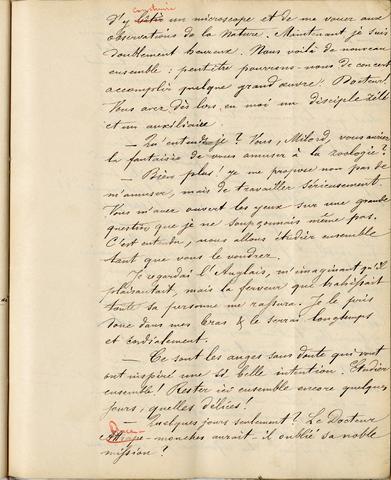 construire
d'y bâtir un microscope et de me vouer aux
observations de la Nature. Maintenant je suis
doublement heureux. Nous voilà de nouveau
ensemble : peut-être pourrons-nous de concert
accomplir quelque grand œuvre. Docteur!
Vous avez dès lors, en moi un disciple zélé
et un auxiliaire.
— Qu'entends-je? Vous, Milord, vous auriez
la fantaisie de vous amuser à la zoologie?
— Bien plus! je me propose non pas de
m'amuser, mais de travailler sérieusement.
Vous m'avez ouvert les yeux sur une grande
question que je ne soupçonnais même pas.
C'est entendu, nous allons étudier ensemble
tant que vous le voudrez.
Je regardais l'Anglais, m'imaginant qu'il
plaisantait, mais la ferveur que trahissait
toute sa personne me rassura. Je le pris
donc dans mes bras & le serrai longtemps
et cordialement.
— Ce sont les anges sans doute qui vous
ont inspiré une si belle intention. Etudier
ensemble! Rester ici ensemble encore quelques
jours, quelles délices!
— Quelques jours seulement? Le Docteur
-mouches aurait-il oublié sa noble
mission?